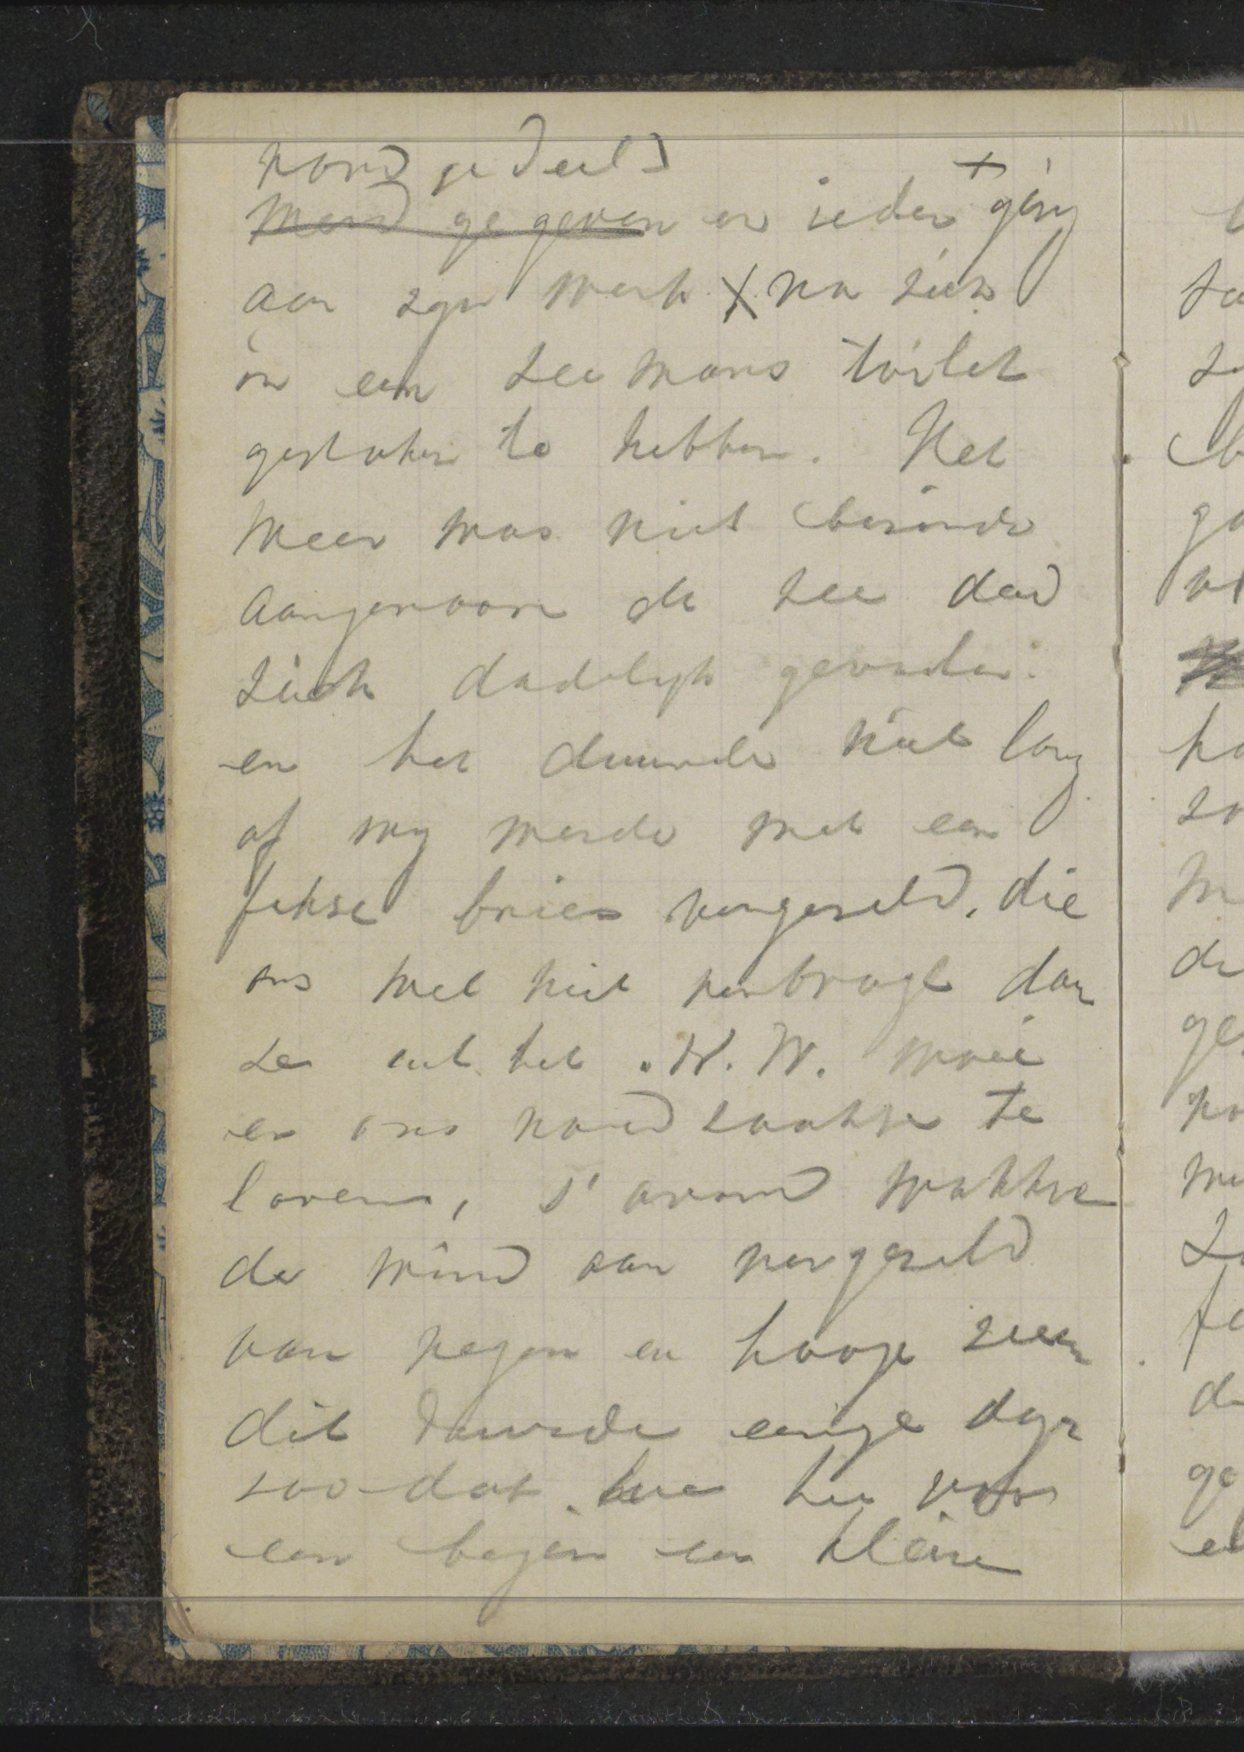 werd gedeeld
werd gegeven en ieder + ging
aan zyn werk X na zich
in een zeemans toilet
gestoken te hebben. Het
weer was niet bizonder
aangenaam de zee deed
zich dadelyk gevoelen.
en het duurde niet lang
of wy werde met een
fikse bries vergeseld, die
ons wel niet verbragt daar
ze uit het N.W. woei
en ons noodzaakte te
laveren, s' avond wakkerde
de wind aan vergeseld
van regen en hooge zeeen
dit duurde eenige dage
zoodat we hier voor
een begin een kleine